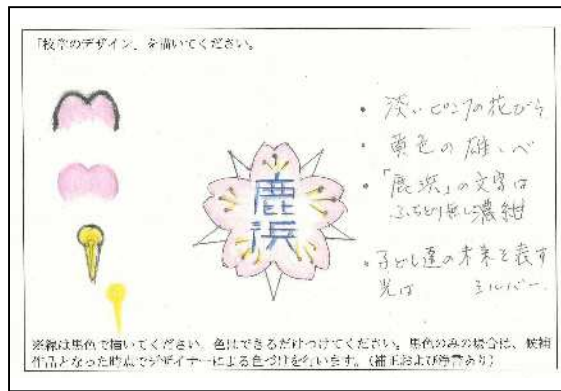 「校章のデザイン」を描いてください。
・淡いピンクの花びら
・黄色の雄しべ
・「鹿浜」の文字は
ふちどり無し濃紺
・子ども達の未来を表す
光は シルバー。
鹿
浜
※線は黒色で描いてください。色はできるだけつけてください。黒色のみの場合は、候補
作品となった時点でデザイナーによる色づけを行います。（補正および浄書あり）